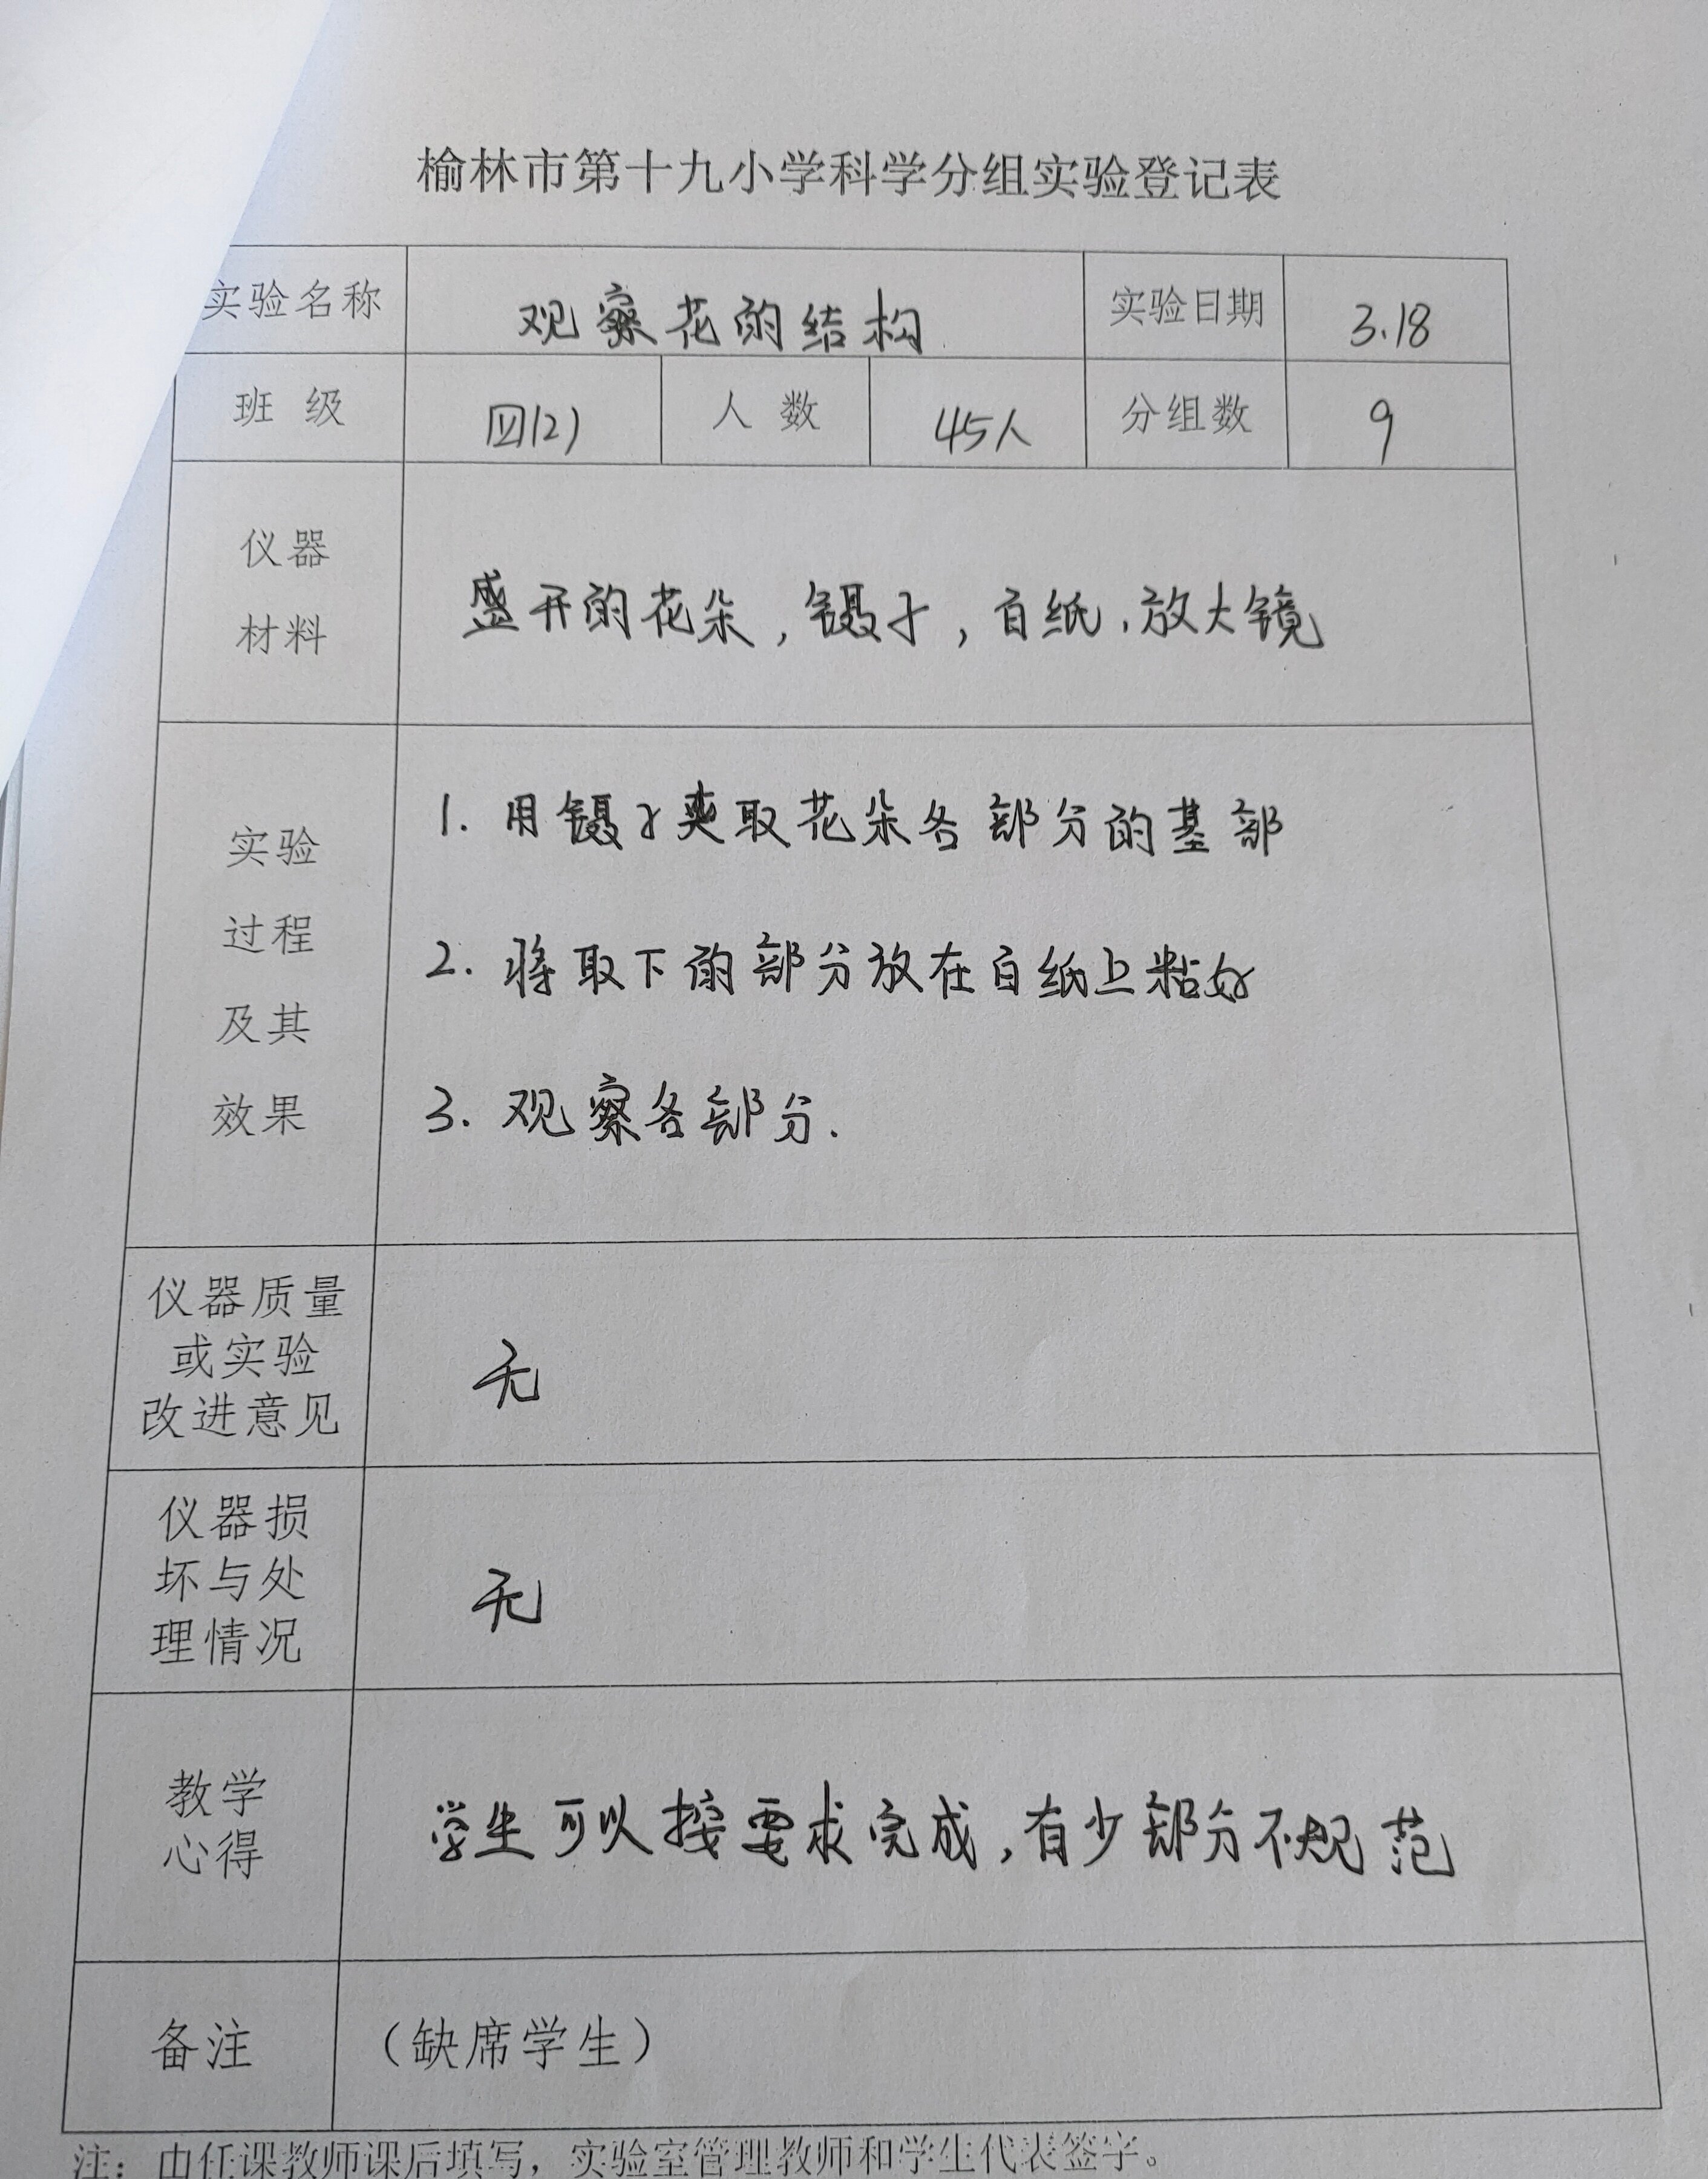 榆林市第十九小学科学分组实验登记表
实验名称 观察花的结构 实验日期 3.18
班 级 四(2) 人 数 45人 分组数 9
仪器
材料
盛开的花朵,镊子,白纸,放大镜
实验
过程
及其
效果
1. 用镊子夹取花朵各部分的基部
2. 将取下的部分放在白纸上粘好
3. 观察各部分.
仪器质量
或实验
改进意见
无
仪器损
坏与处
理情况
无
教学
心得
学生可以按要求完成,有少部分不规范
备注 (缺席学生)
注:由任课教师课后填写,实验室管理教师和学生代表签字。